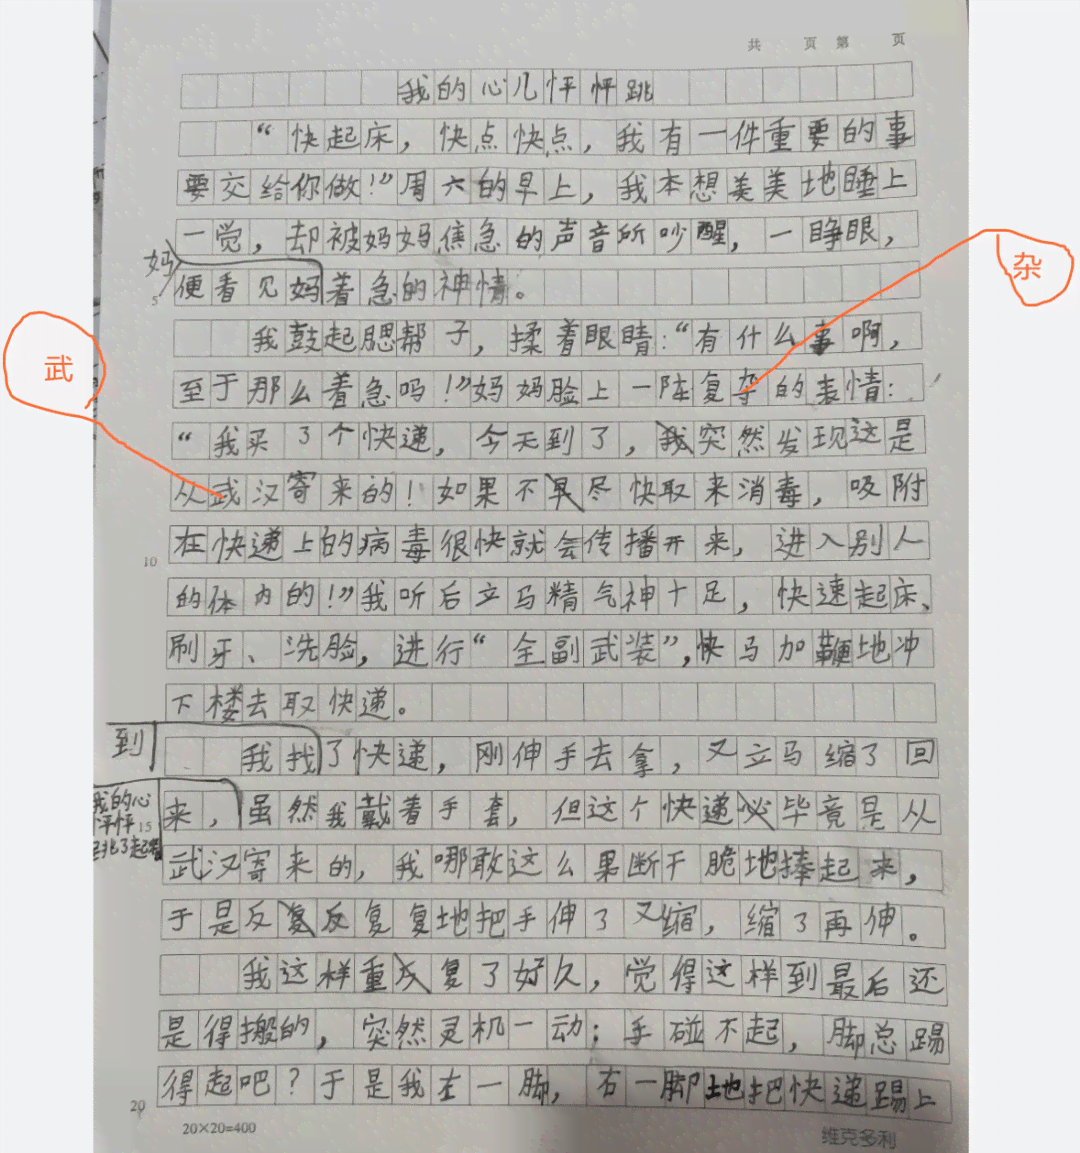 共 页 第 页
我的心儿怦怦跳
“快起床，快点快点，我有一件重要的事
要交给你做！”周六的早上，我本想美美地睡上
一觉，却被妈妈焦急的声音所吵醒，一睁眼，
妈
便看见妈着急的神情。
5
杂
我鼓起腮帮子，揉着眼睛：“有什么事啊，
武
至于那么着急吗！”妈妈脸上一阵复杂的表情：
“我买了个快递，今天到了，我突然发现这是
从武汉寄来的！如果不早尽快取来消毒，吸附
在快递上的病毒很快就会传播开来，进入别人
10
的体内的！”我听后立马精气神十足，快速起床、
刷牙、洗脸，进行“全副武装”，快马加鞭地冲
下楼去取快递。
到
我找了快递，刚伸手去拿，又立马缩了回
我的心
怦怦
跳了起来
来，虽然我戴着手套，但这个快递必毕竟是从
15
武汉寄来的，我哪敢这么果断干脆地捧起来，
于是反复反复复地把手伸了又缩，缩了再伸。
我这样重反复了好久，觉得这样到最后还
是得搬的，突然灵机一动；手碰不起，脚总踢
得起吧？于是我左一脚，右一脚地把快递踢上
20
20×20=400
维克多利